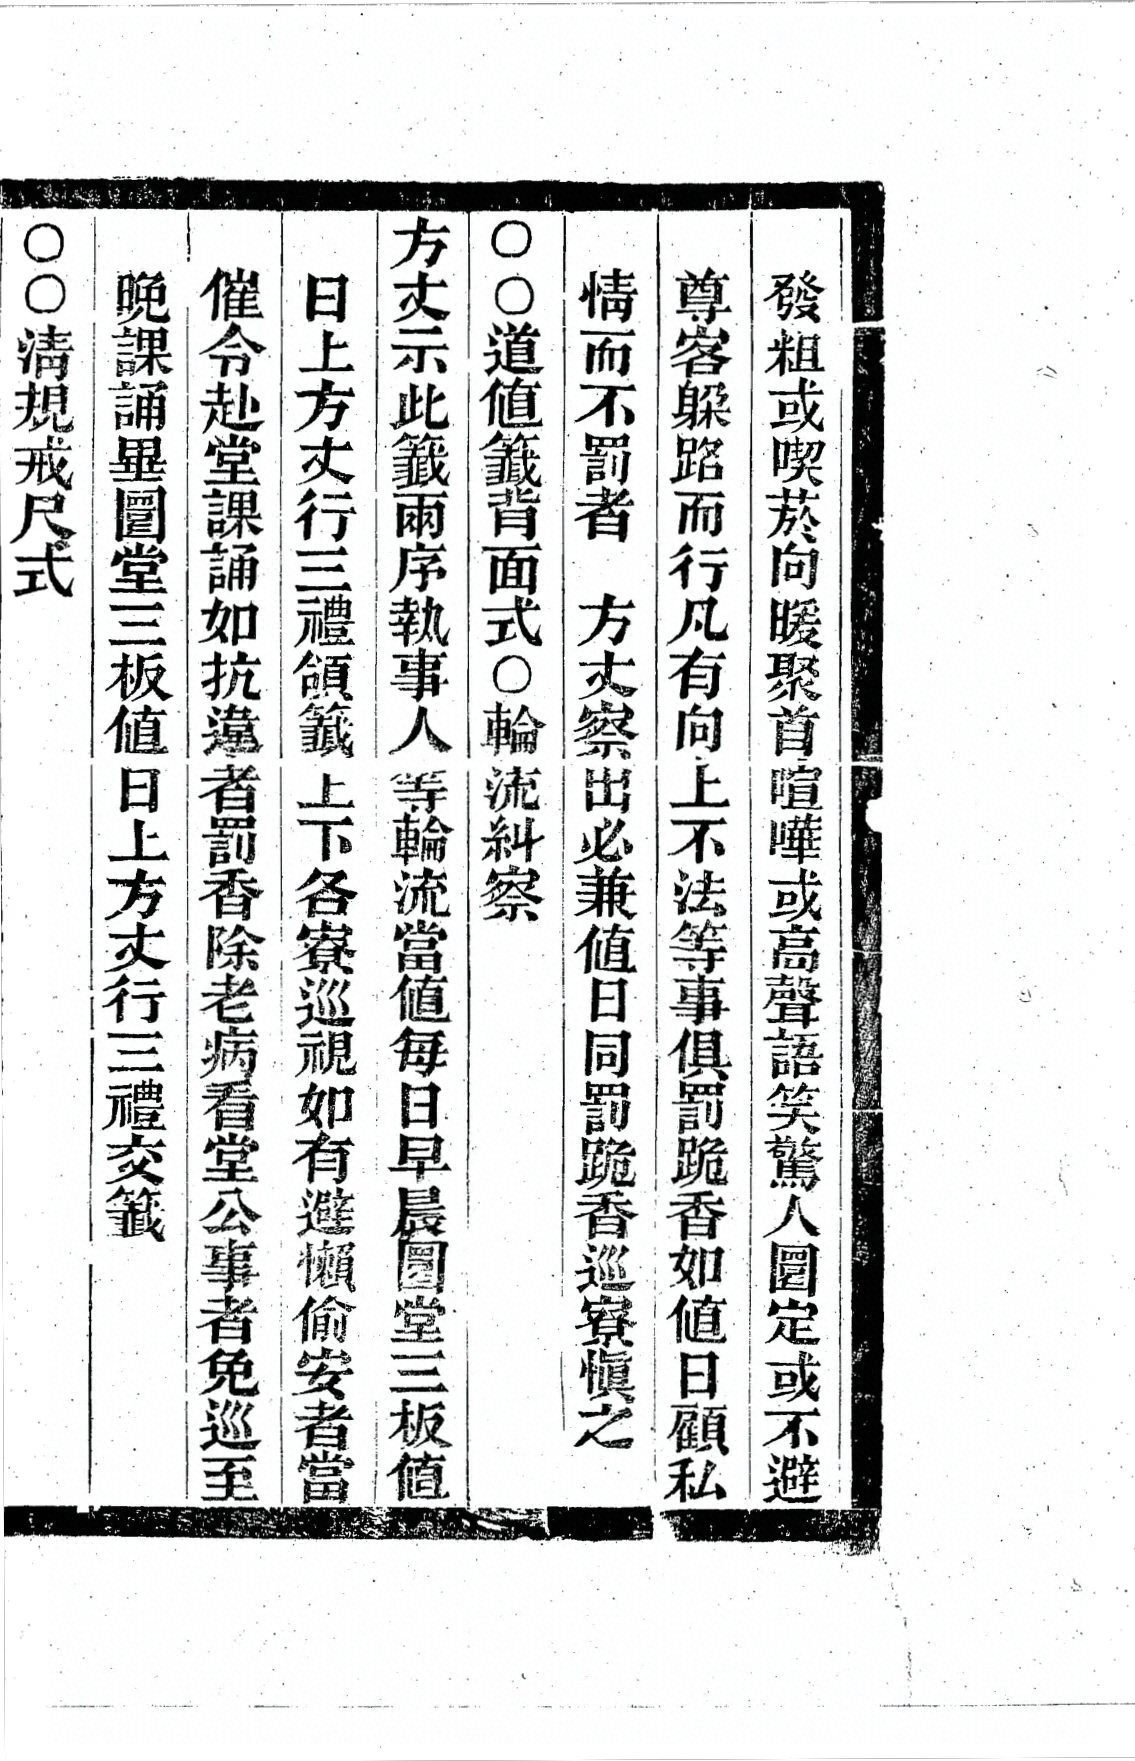 發粗或喫菸向暖聚首喧嘩或高聲語笑驚人圊定或不避
尊客躲路而行凡有向上不法等事俱罰跪香如値日顧私
情而不罰者　方丈察出必兼値日同罰跪香巡寮愼之
〇〇道値籤背面式〇輪流糾察
方丈示此籤兩序執事人等輪流當値每日早晨圊堂三板値
日上方丈行三禮領籤上下各寮巡視如有避懶偷安者當
催令赴堂課誦如抗違者罰香除老病看堂公事者免巡至
晚課誦畢圊堂三板値日上方丈行三禮交籤
〇〇清規戒尺式